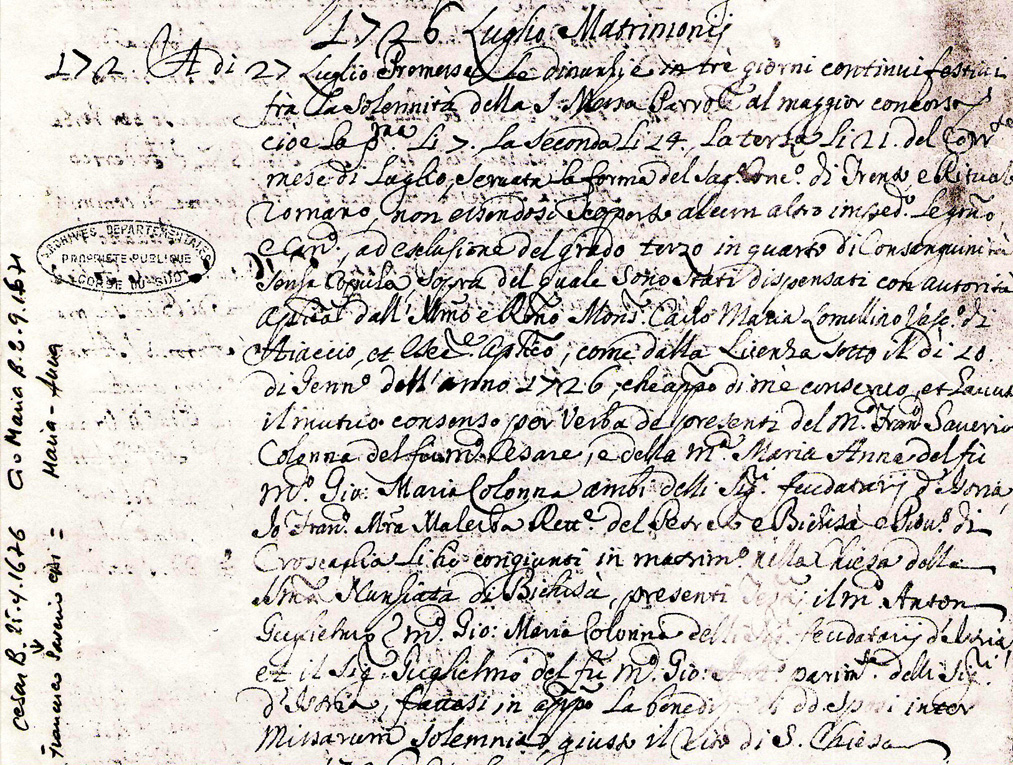 1726 Luglio Matrimonij
172 A di 27 Luglio Promesse le dinunzie in trè giorni continui festivi
frà la Solennità della S. Messa Parroле al maggior concorso
cioè la pma. li 7. la Seconda li 14, la terza li 21. del Corrte
mese di Luglio, Servata la forma del Sag.º Conc.º di Trento, e Rituale
Romano, non essendosi Scoperto alcun altro imped.º Legmo
e Can.º, ad esclusione del grado terzo in quarto di Consanguinità
Senza Copula Sopra del quale Sono Stati dispensati con autorità
Aplica dall' Illmo e Rmo Mons.r Carlo Maria Lomellino Vesc.º di
Aiaccio, et Aplico, come dalla Licenza sotto il dì 20.
di Genn.º dell' anno 1726, che appo di mè conservo, et havuto
il mutuo consenso per Verba de presenti del M.º Fran.º Saverio
Colonna del fu m.º Cesare, e della m.ª Maria Anna del fù
m.º Gio: Maria Colonna ambi delli Sig.ri feudatarij d'Istria
Io Fran.º Mra Malerba Rett.e del Petreto e Bichisà e di
Croscaglia li hò congiunti in matrim.º nella Chiesa della
Sma Nunsiata di Bichisà, presenti Testij il m.º Anton
Guglielmo m.º Gio: Maria Colonna delli feudatarij d'Istria,
et il Sig. Guglielmo del fù m.º Gio: parim.te delli Sig.ri
d'Istria, fattasi in appo la di dd. Sposi inter
Missarum Solemnia, giusto il Rito di S. Chiesa
ARCHIVES DEPARTEMENTALES
PROPRIETE PUBLIQUE
CORSE DU SUD
Cesar B. 25.4.1676 Gio Maria B. 2.9.1671
Francesco Saverio = Maria-Anna